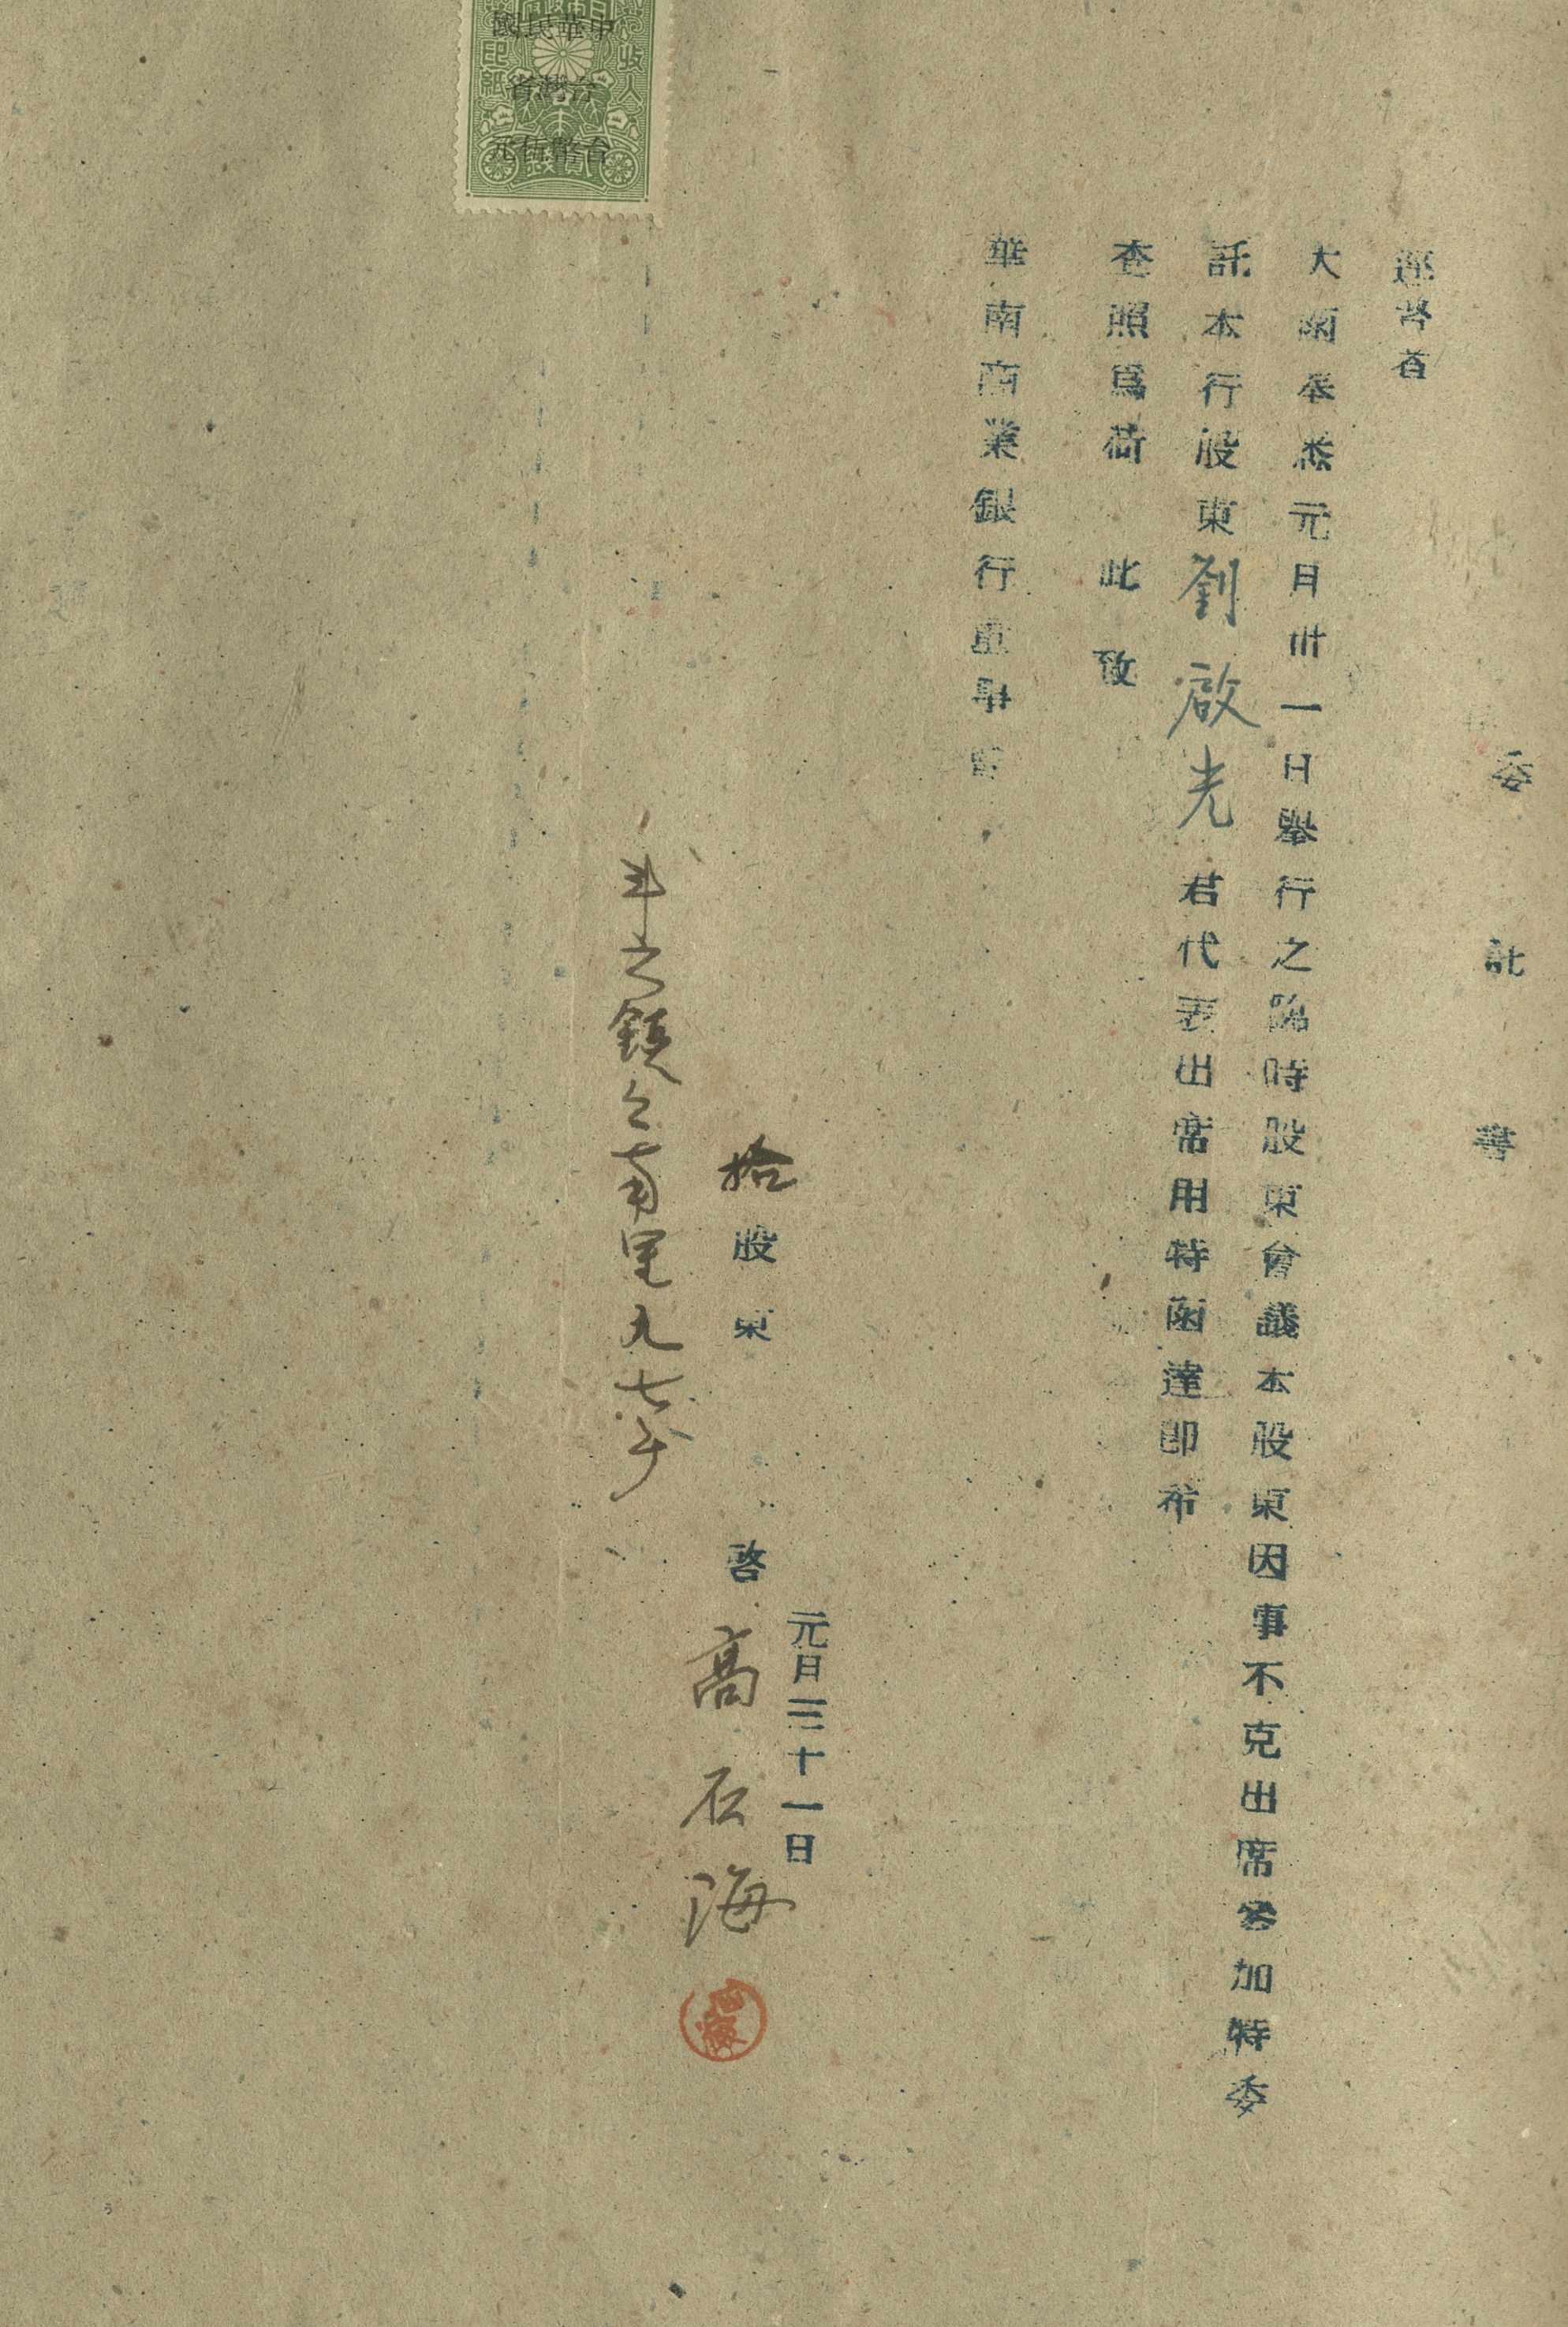 委託書
逕啓者
大函奉悉元月卅一日舉行之臨時股東會議本股東因事不克出席參加特委
託本行股東劉啟光君代表出席用特函達即希
查照爲荷 此致
華南商業銀行董事
元月三十一日
拾股東 啓 高石海
斗六鎮 南里九七
石海
中華民國
台灣省
台幣伍元
收入印紙
貳錢